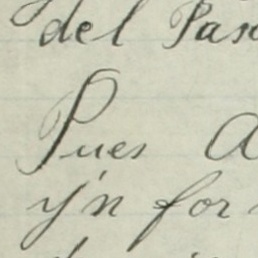 del Pas
Pues A
y'n for